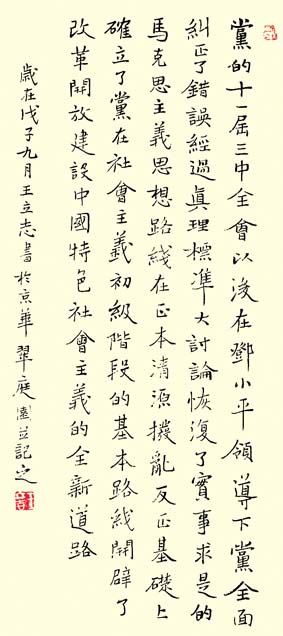 黨的十一屆三中全會以後在鄧小平領導下黨全面
糾正了錯誤經過真理標準大討論恢復了實事求是的
馬克思主義思想路綫在正本清源撥亂反正基礎上
確立了黨在社會主義初級階段的基本路綫開辟了
改革開放建設中國特色社會主義的全新道路
歲在戊子九月王立志書於京華翠庭園並記之